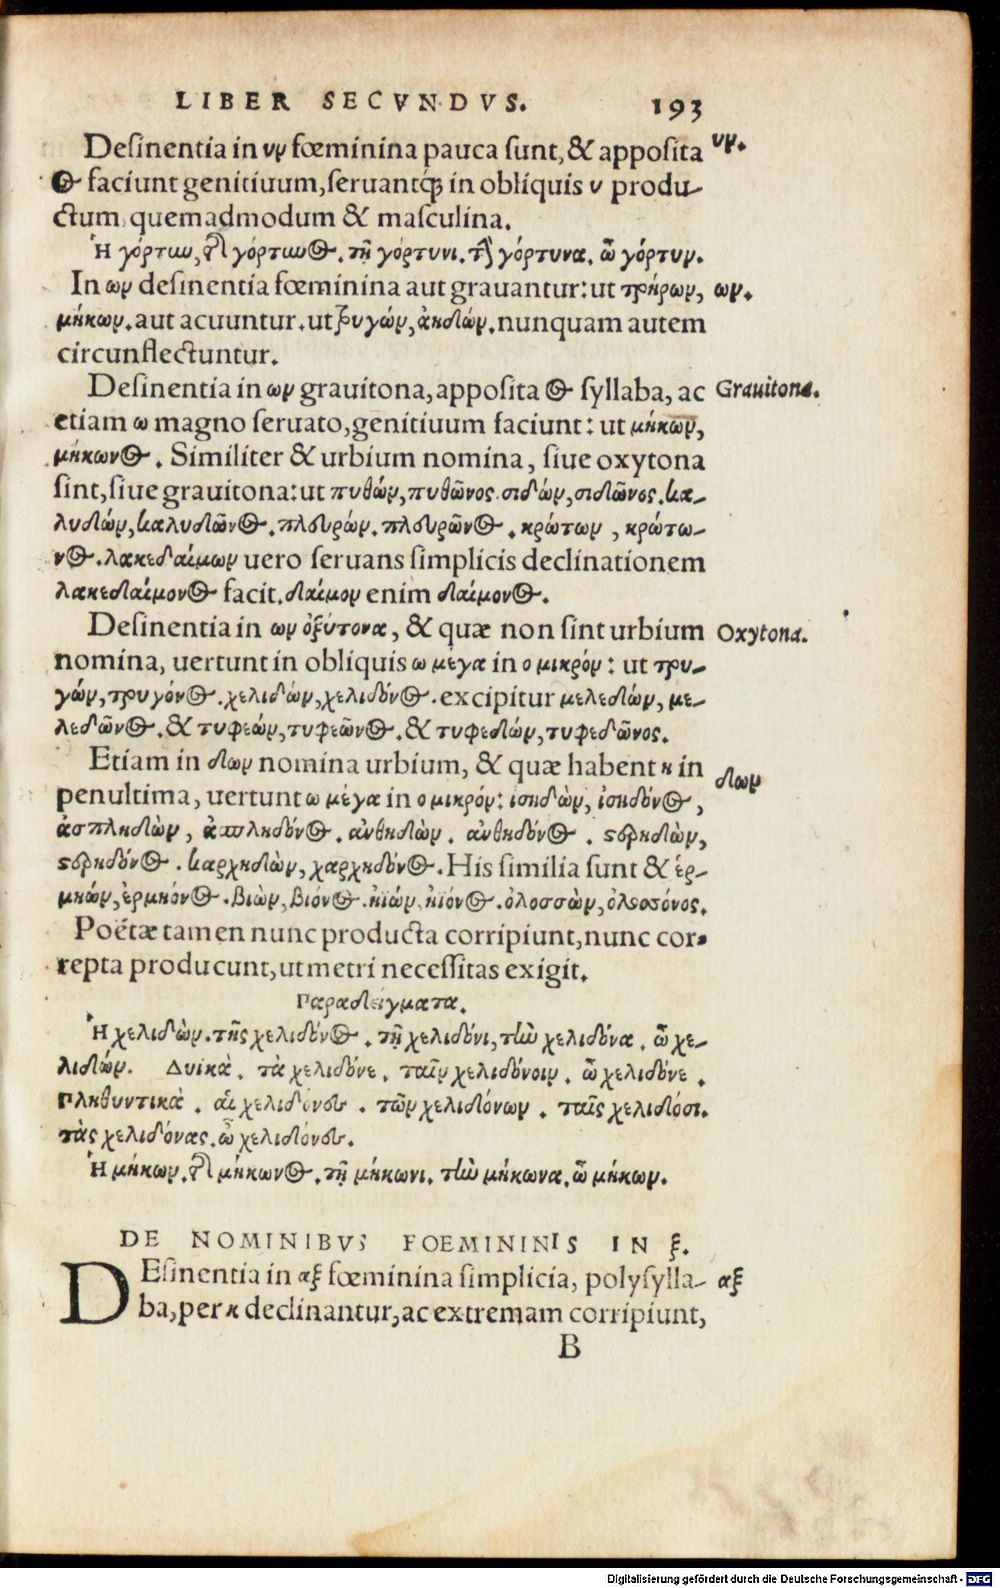 LIBER SECVNDVS. 193
Desinentia in υν fœminina pauca sunt, & apposita υν.
ος faciunt genitiuum, seruantq́; in obliquis υ produ-
ctum, quemadmodum & masculina.
Ἡ γόρτυν, τῆς γόρτυνος. τῇ γόρτυνι. τὴν γόρτυνα. ὦ γόρτυν.
In ων desinentia fœminina aut grauantur: ut τρήρων, ων.
μήκων. aut acuuntur. ut τρυγών, ἀηδών. nunquam autem
circunflectuntur.
Desinentia in ων grauitona, apposita ος syllaba, ac Grauitona.
etiam ω magno seruato, genitiuum faciunt: ut μήκων,
μήκωνος. Similiter & urbium nomina, siue oxytona
sint, siue grauitona: ut πυθών, πυθῶνος. σιδών, σιδῶνος. κα-
λυδών, καλυδῶνος. πλουρών. πλουρῶνος. κρώτων, κρώτω-
νος. λακεδαίμων uero seruans simplicis declinationem
λακεδαίμονος facit. δαίμον enim δαίμονος.
Desinentia in ων ὀξύτονα, & quæ non sint urbium Oxytona.
nomina, uertunt in obliquis ω μέγα in ο μικρόν: ut τρυ-
γών, τρυγόνος. χελιδών, χελιδόνος. excipitur μελεδών, με-
λεδῶνος. & τυφεών, τυφεῶνος. & τυφεδών, τυφεδῶνος.
Etiam in δων nomina urbium, & quæ habent κ in δων
penultima, uertunt ω μέγα in ο μικρόν: ισηδὼν, ἰσηδόνος,
ἀσπληδὼν, ἀσπληδόνος. ἀνθηδὼν. ἀνθηδόνος.
καρχηδὼν, χαρχηδόνος. His similia sunt & ἑρ-
μηών, ἑρμηόνος. βιὼν, βιόνος. ἠϊών, ἠϊόνος. ὀλοσσὼν,
Poëtæ tamen nunc producta corripiunt, nunc cor-
repta producunt, ut metri necessitas exigit.
Παραδείγματα.
Ἡ χελιδὼν. τῆς χελιδόνος. τῇ χελιδόνι, τὴν χελιδόνα. ὦ χε-
λιδών. Δυικὰ. τὰ χελιδόνε. ταῖν χελιδόνοιν. ὦ χελιδόνε.
Πληθυντικὰ. αἱ χελιδόνες. τῶν χελιδόνων. ταῖς χελιδόσι.
τὰς χελιδόνας. ὦ χελιδόνες.
Ἡ μήκων. τῆς μήκωνος. τῇ μήκωνι. τὴν μήκωνα. ὦ μήκων.
DE NOMINIBVS FOEMININIS IN ξ.
DEsinentia in αξ fœminina simplicia, polysylla- αξ
ba, per κ declinantur, ac extremam corripiunt,
B
Digitalisierung gefördert durch die Deutsche Forschungsgemeinschaft - DFG